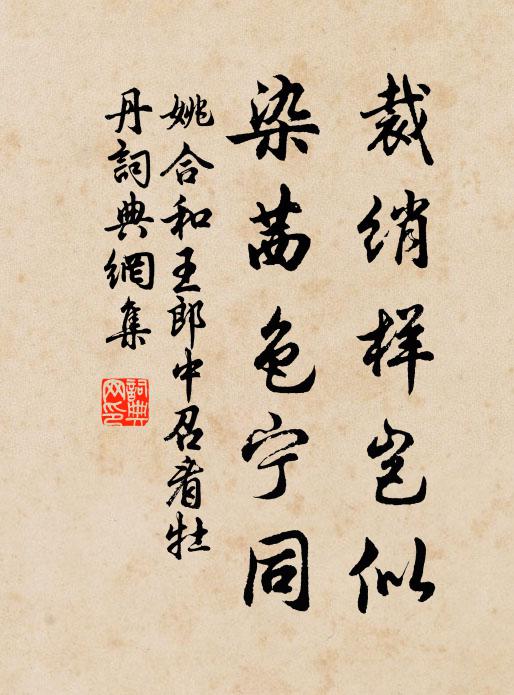 裁绡样岂似
染茜色宁同
姚合和王郎中召看牡
丹詞典網集
詞典网印